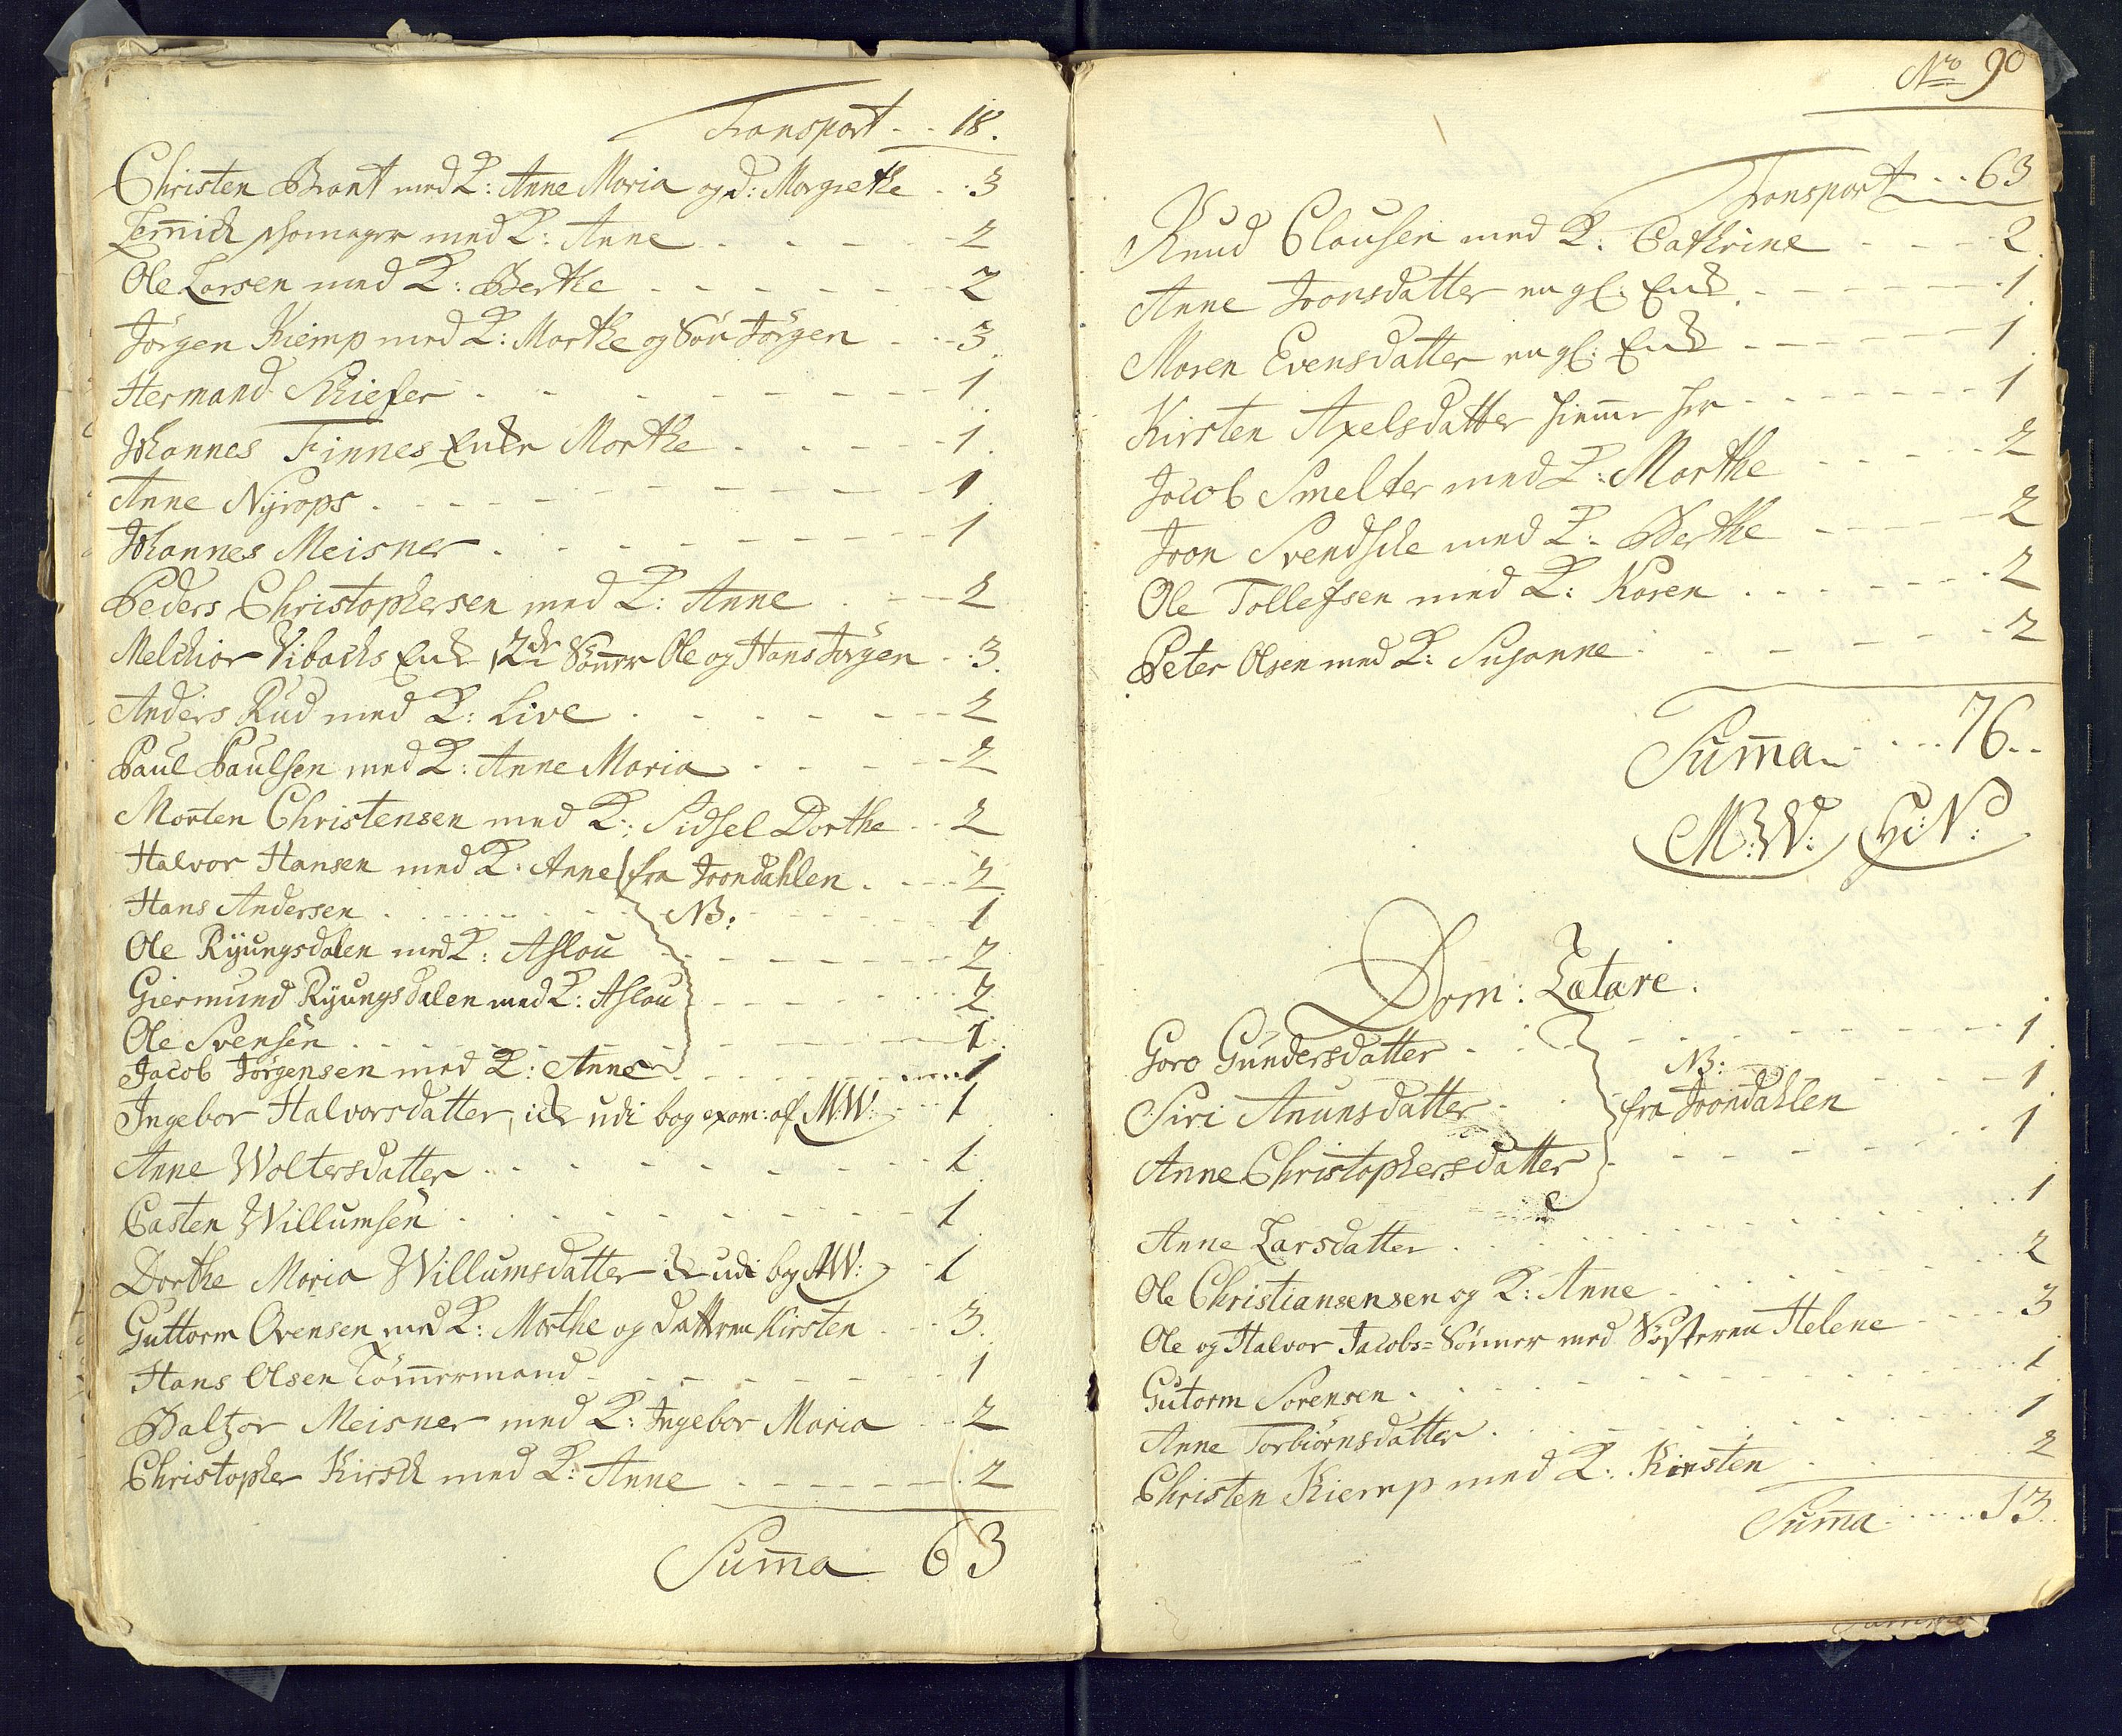 Transport - - 18.
Christen Brant med K: Anne Maria og D: Margrethe - - 3
Lennich med K: Anne - - - - 2
Ole Larsen med K: Berthe - - - - - - 2
Jörgen Kiemp med K: Marthe og Sön Jörgen - - - 3
Hermand Schiefer - - - - - - - 1
Johannes Finnes Enke Marthe - - - - - 1
Anne Nÿrops - - - - - - - - 1
Johannes Meisner - - - - - - - - 1
Peders Christophersen med K: Anne - - - 2
Melchior Vibachs Enke 2de Sönner Ole og Hans Jörgen - - 3
Anders Rud med K: Live - - - - - - 2
Paul Paulsen med K: Anne Maria - - - - - 2
Morten Christensen med K: Sidsel Dorthe - - 2
Halvor Hansen med K: Anne fra Jrondahlen - - - - 2
Hans Andersen - - - - NB: - - - - 1
Ole Rÿungsdalen med K: Aslou - - - - - - 2
Giermund Rÿungsdalen med K: Aslou - - - - 2
Ole Svensen - - - - - - - - 1
Jacob Jörgensen med K: Anne - - - - 1
Ingebor Halvorsdatter, ick udi bog exam: af M:W: - - - 1
Anne Woltersdatter - - - - - - - - 1
Casten Willumsen - - - - - - - - 1
Dorthe Maria Willumsdatter ick udi bog MW: - 1
Guttorm Ovensen med K: Marthe og datteren Kirsten - - - 3
Hans Olsen Tömmermand - - - - - - - 1
Baltzor Meisner med K: Ingebor Maria - - 2
Christopher Kirsch med K: Anne - - - - - - 2
Summa 63
No 90
Transport - - 63
Knud Clausen med K: Cathrine - - - - 2
Anne Joonsdatter en gl: Enke - - - - - - - 1
Maren Evensdatter en gl: Enke - - - - - - - 1
Kirsten Axelsdatter - - - - - - - 1
Jacob Smelter med K: Marthe - - - - - 2
Joon Svendske med K: Berthe - - - - - 2
Ole Tollefsen med K: Karen - - - - - - 2
Peter Olsen med K: Susanne - - - - - 2
Summa - - - 76 - -
M:W: H:N:
Dom: Lætare.
Goro Gundersdatter - - - - - - - - 1
NB:
Siri Anunsdatter - - - - - - 1
fra Jrondahlen
Anne Christophersdatter - - - - - - 1
Anne Larsdatter - - - - - - - - 1
Ole Christiansensen og K: Anne - - - - - - 2
Ole og Halvor Jacobs=Sönner med Sösteren Helene - - - - 3
Gutorm Sorensen - - - - - - - - 1
Anne Torbiörnsdatter - - - - - - - - 1
Christen Kiemp med K: Kirsten - - - - 2
Summa - - - - 13